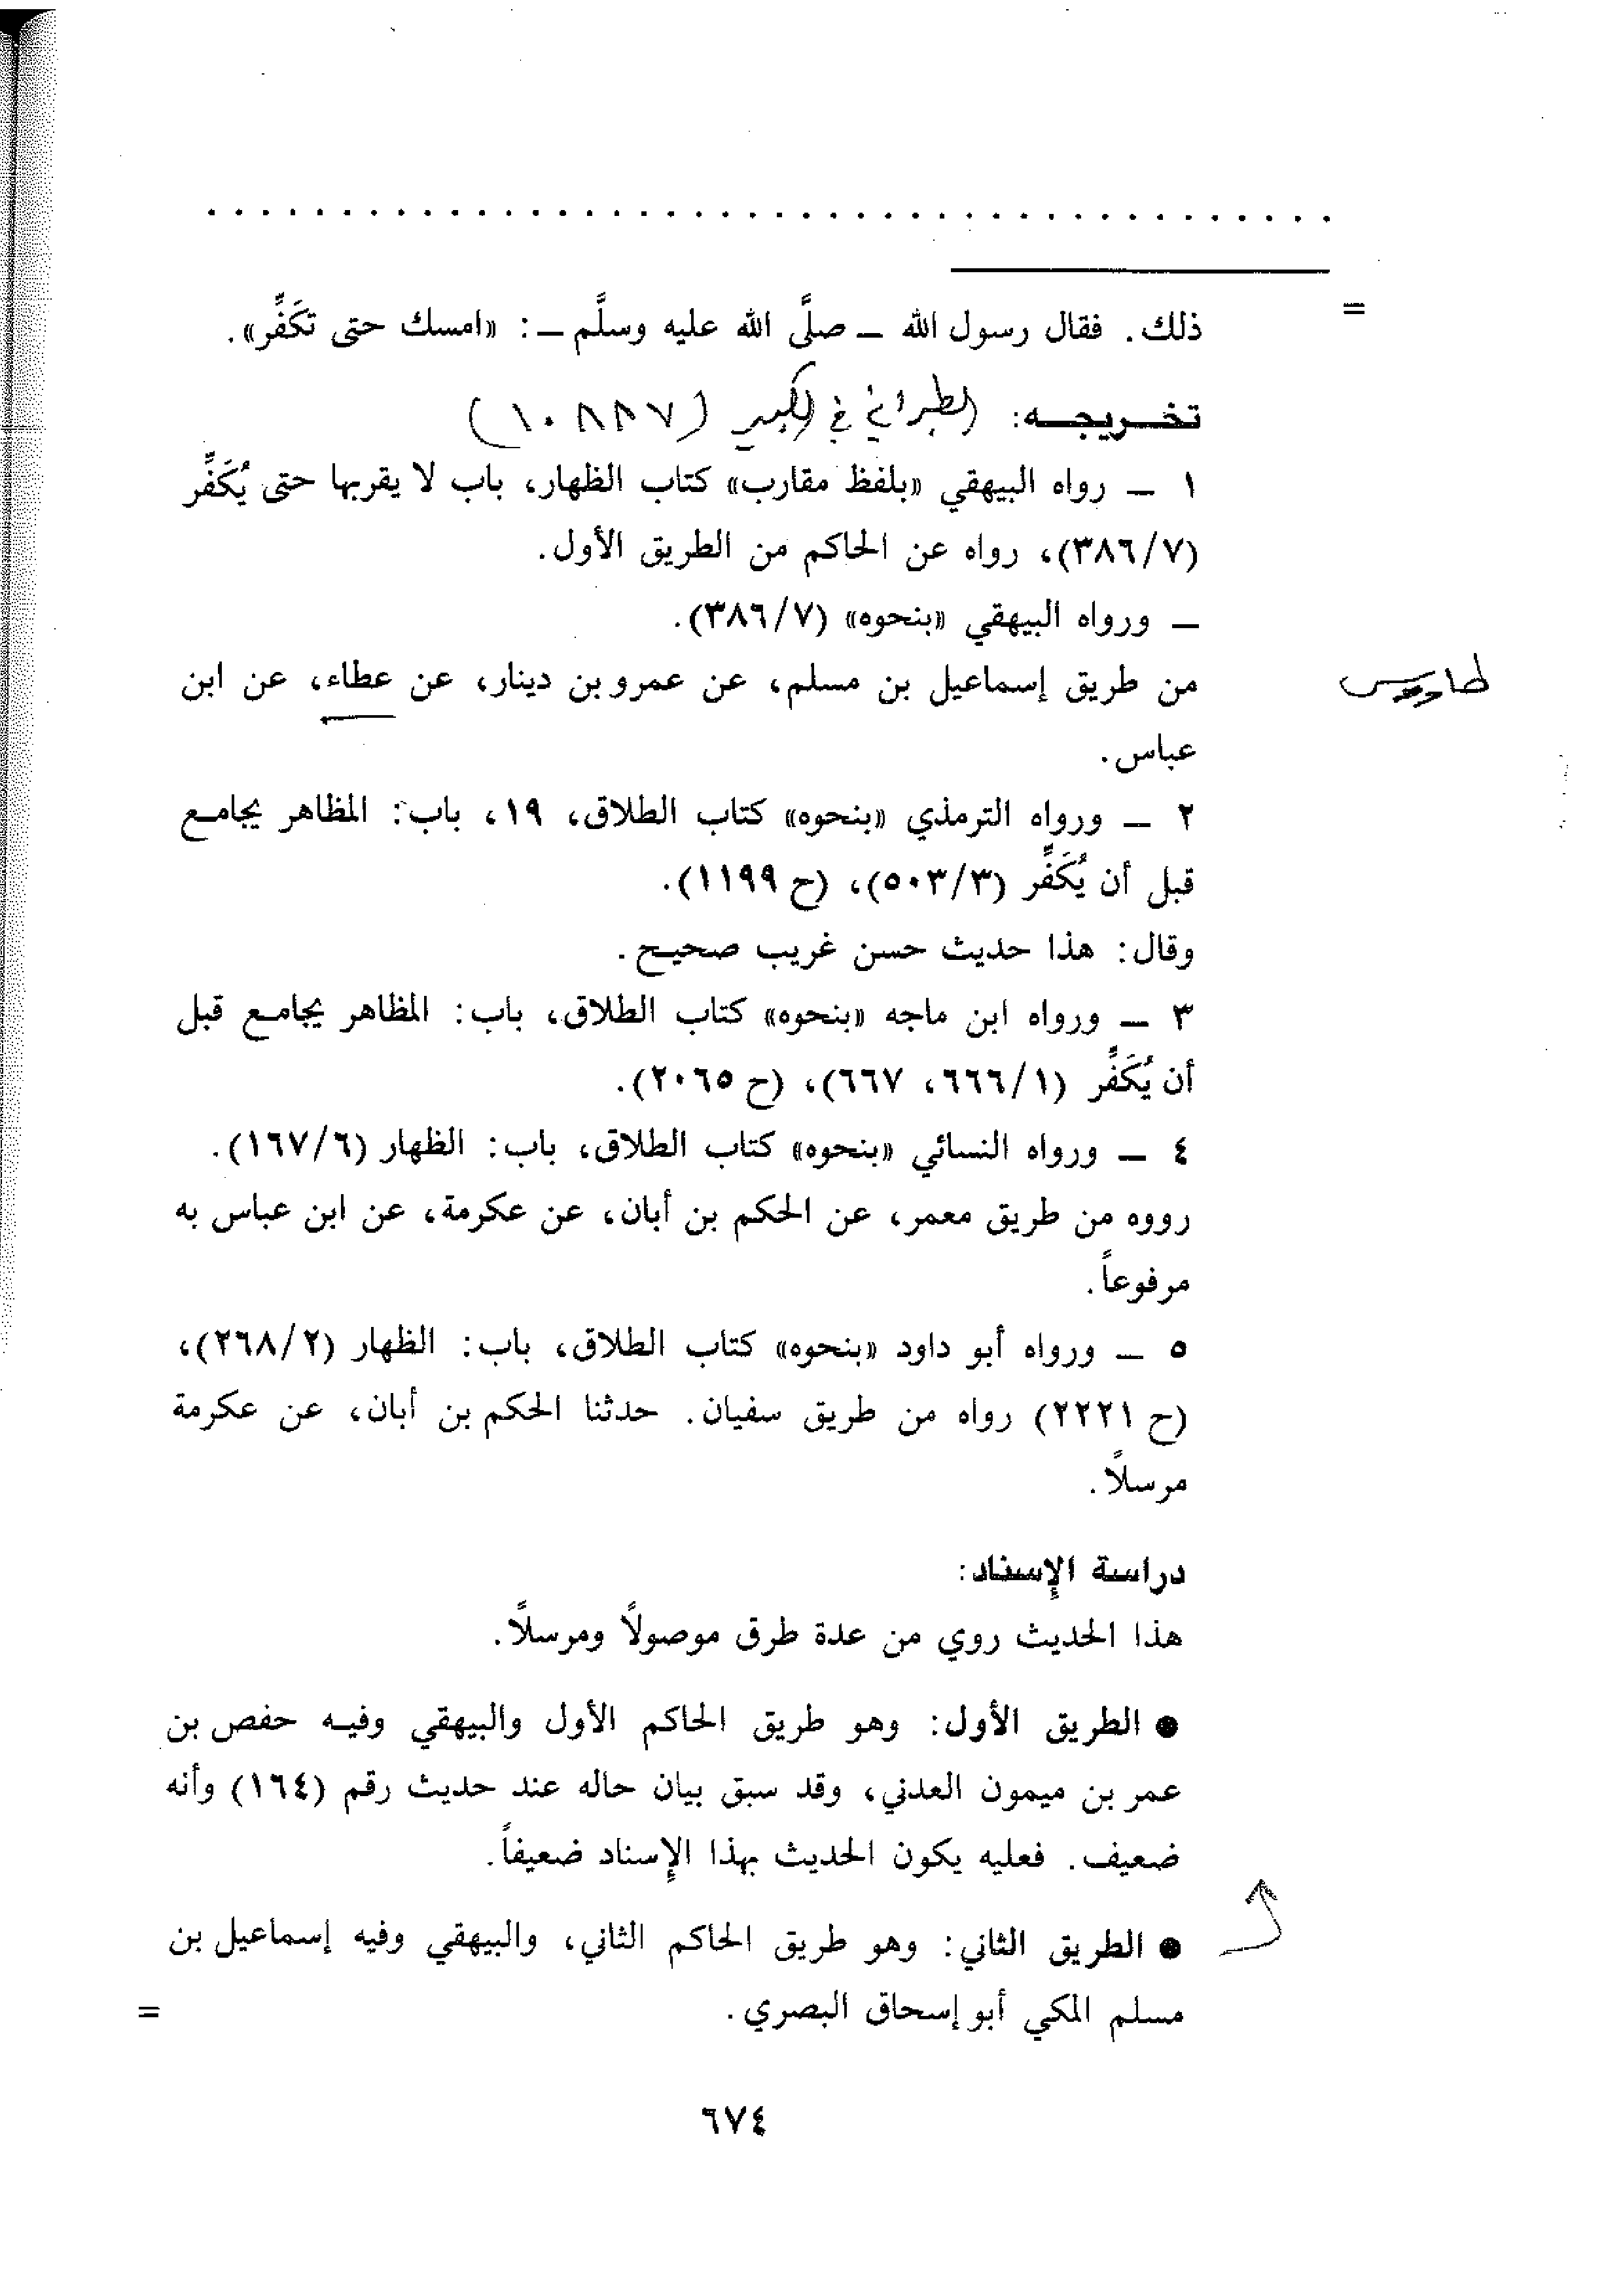 = ذلك. فقال رسول الله ــ صلَّى الله عليه وسلَّم ــ: «امسك حتى تكَفِّر».
تخـــريجـــه: الطبراني في الكبير (١٠٨٨٧)
١ ــ رواه البيهقي «بلفظ مقارب» كتاب الظهار، باب لا يقربها حتى يُكَفِّر
(٣٨٦/٧)، رواه عن الحاكم من الطريق الأول.
ــ ورواه البيهقي «بنحوه» (٣٨٦/٧).
من طريق إسماعيل بن مسلم، عن عمرو بن دينار، عن عطاء، عن ابن
طاووس
عباس.
٢ ــ ورواه الترمذي «بنحوه» كتاب الطلاق، ١٩، باب: المظاهر يجامـع
قبل أن يُكَفِّر (٥٠٣/٣)، (ح ١١٩٩).
وقال: هذا حديث حسن غريب صحيـح.
٣ ــ ورواه ابن ماجه «بنحوه» كتاب الطلاق، باب: المظاهر يجامـع قبل
أن يُكَفِّر (٦٦٦/١، ٦٦٧)، (ح ٢٠٦٥).
٤ ــ ورواه النسائي «بنحوه» كتاب الطلاق، باب: الظهار (١٦٧/٦).
رووه من طريق معمر، عن الحكم بن أبان، عن عكرمة، عن ابن عباس به
مرفوعاً.
٥ ــ ورواه أبو داود «بنحوه» كتاب الطلاق، باب: الظهار (٢٦٨/٢)،
(ح ٢٢٢١) رواه من طريق سفيان. حدثنا الحكم بن أبان، عن عكرمة
مرسلاً.
دراسة الإسناد:
هذا الحديث روي من عدة طرق موصولاً ومرسلاً.
● الطريق الأول: وهو طريق الحاكم الأول والبيهقي وفيـه حفص بن
عمر بن ميمون العدني، وقد سبق بيان حاله عند حديث رقم (١٦٤) وأنه
ضعيف. فعليه يكون الحديث بهذا الإسناد ضعيفاً.
● الطريق الثاني: وهو طريق الحاكم الثاني، والبيهقي وفيه إسماعيل بن
مسلم المكي أبو إسحاق البصري. =
٦٧٤